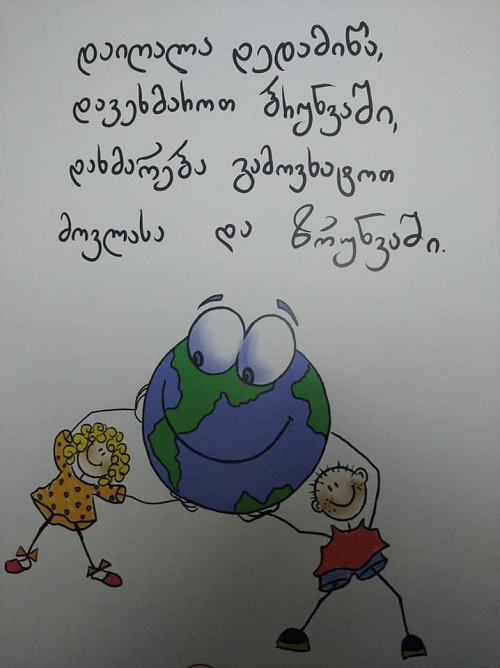 დაიღალა დედამიწა,
დავეხმაროთ ბრუნვაში,
დახმარება გამოვხატოთ
მოვლასა და ზრუნვაში.